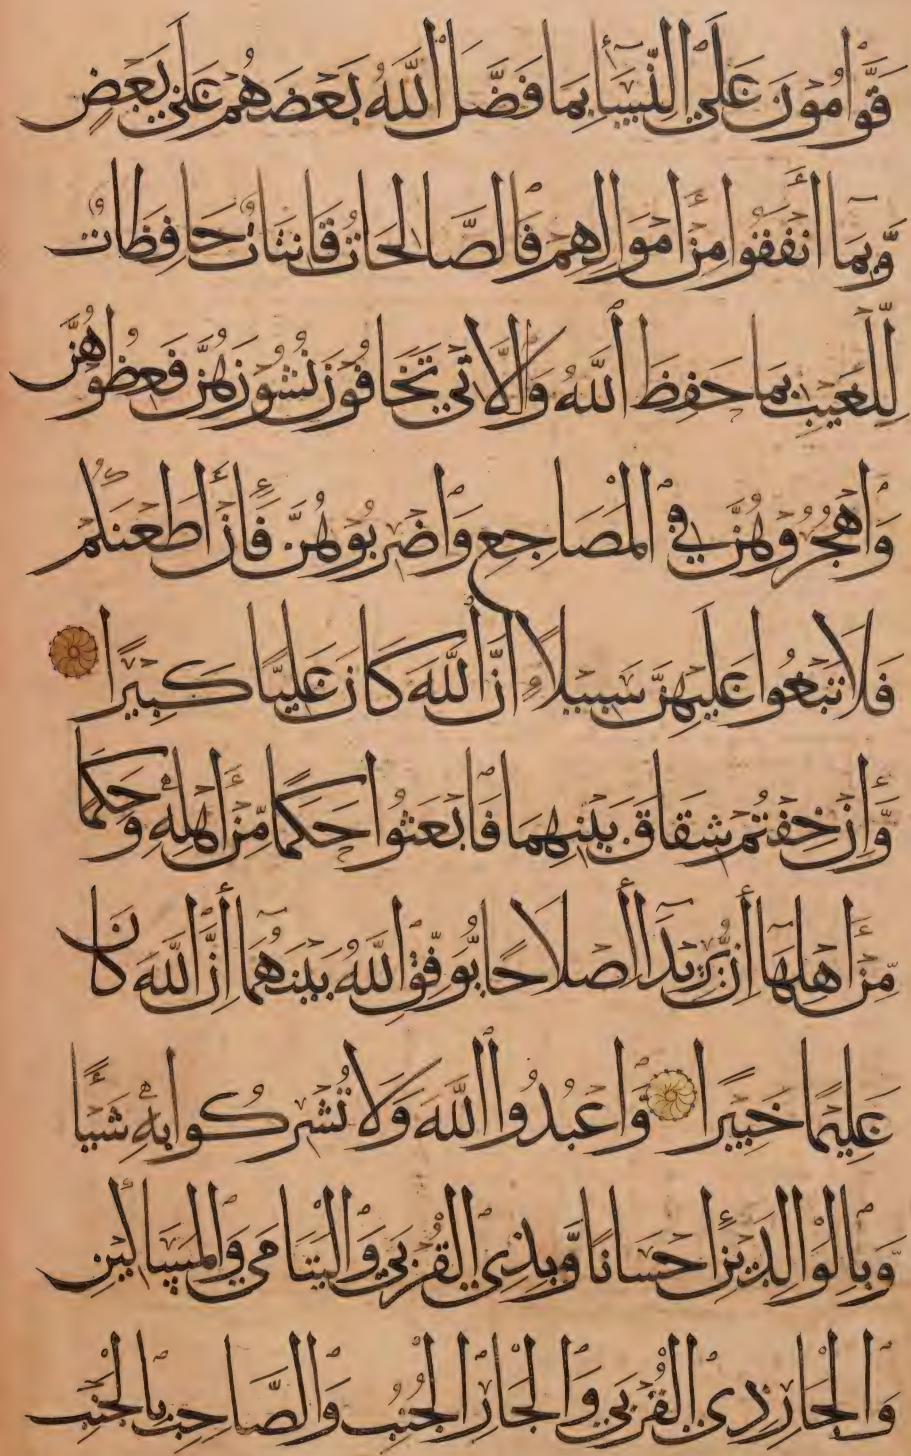 قَوَّامُونَ عَلَى النِّسَآءِ بِمَا فَضَّلَ اللَّهُ بَعْضَهُمْ عَلَى بَعْضٍ
وَّبِمَآ أَنْفَقُوا مِنْ أَمْوَالِهِمْ فَالصَّالِحَاتُ قَانِتَاتٌ حَافِظَاتٌ
لِّلْغَيْبِ بِمَا حَفِظَ اللَّهُ وَالَّلاتِي تَخَافُونَ نُشُوزَهُنَّ فَعِظُوهُنَّ
وَاهْجُرُوهُنَّ فِي الْمَضَاجِعِ وَاضْرِبُوهُنَّ فَإِنْ أَطَعْنَكُمْ
فَلَا تَبْغُوا عَلَيْهِنَّ سَبِيلًا إِنَّ اللَّهَ كَانَ عَلِيًّا كَبِيرًا
وَّإِنْ خِفْتُمْ شِقَاقَ بَيْنِهِمَا فَابْعَثُوا حَكَمًا مِّنْ أَهْلِهِ وَحَكَمًا
مِّنْ أَهْلِهَآ إِنْ يُّرِيدَآ إِصْلَاحًا يُّوَفِّقِ اللَّهُ بَيْنَهُمَا إِنَّ اللَّهَ كَانَ
عَلِيمًا خَبِيرًا وَّاعْبُدُوا اللَّهَ وَلَا تُشْرِكُوا بِهِ شَيْئًا
وَّبِالْوَالِدَيْنِ إِحْسَانًا وَّبِذِي الْقُرْبَى وَالْيَتَامَى وَالْمَسَاكِينِ
وَالْجَارِ ذِي الْقُرْبَى وَالْجَارِ الْجُنُبِ وَالصَّاحِبِ بِالْجَنْبِ